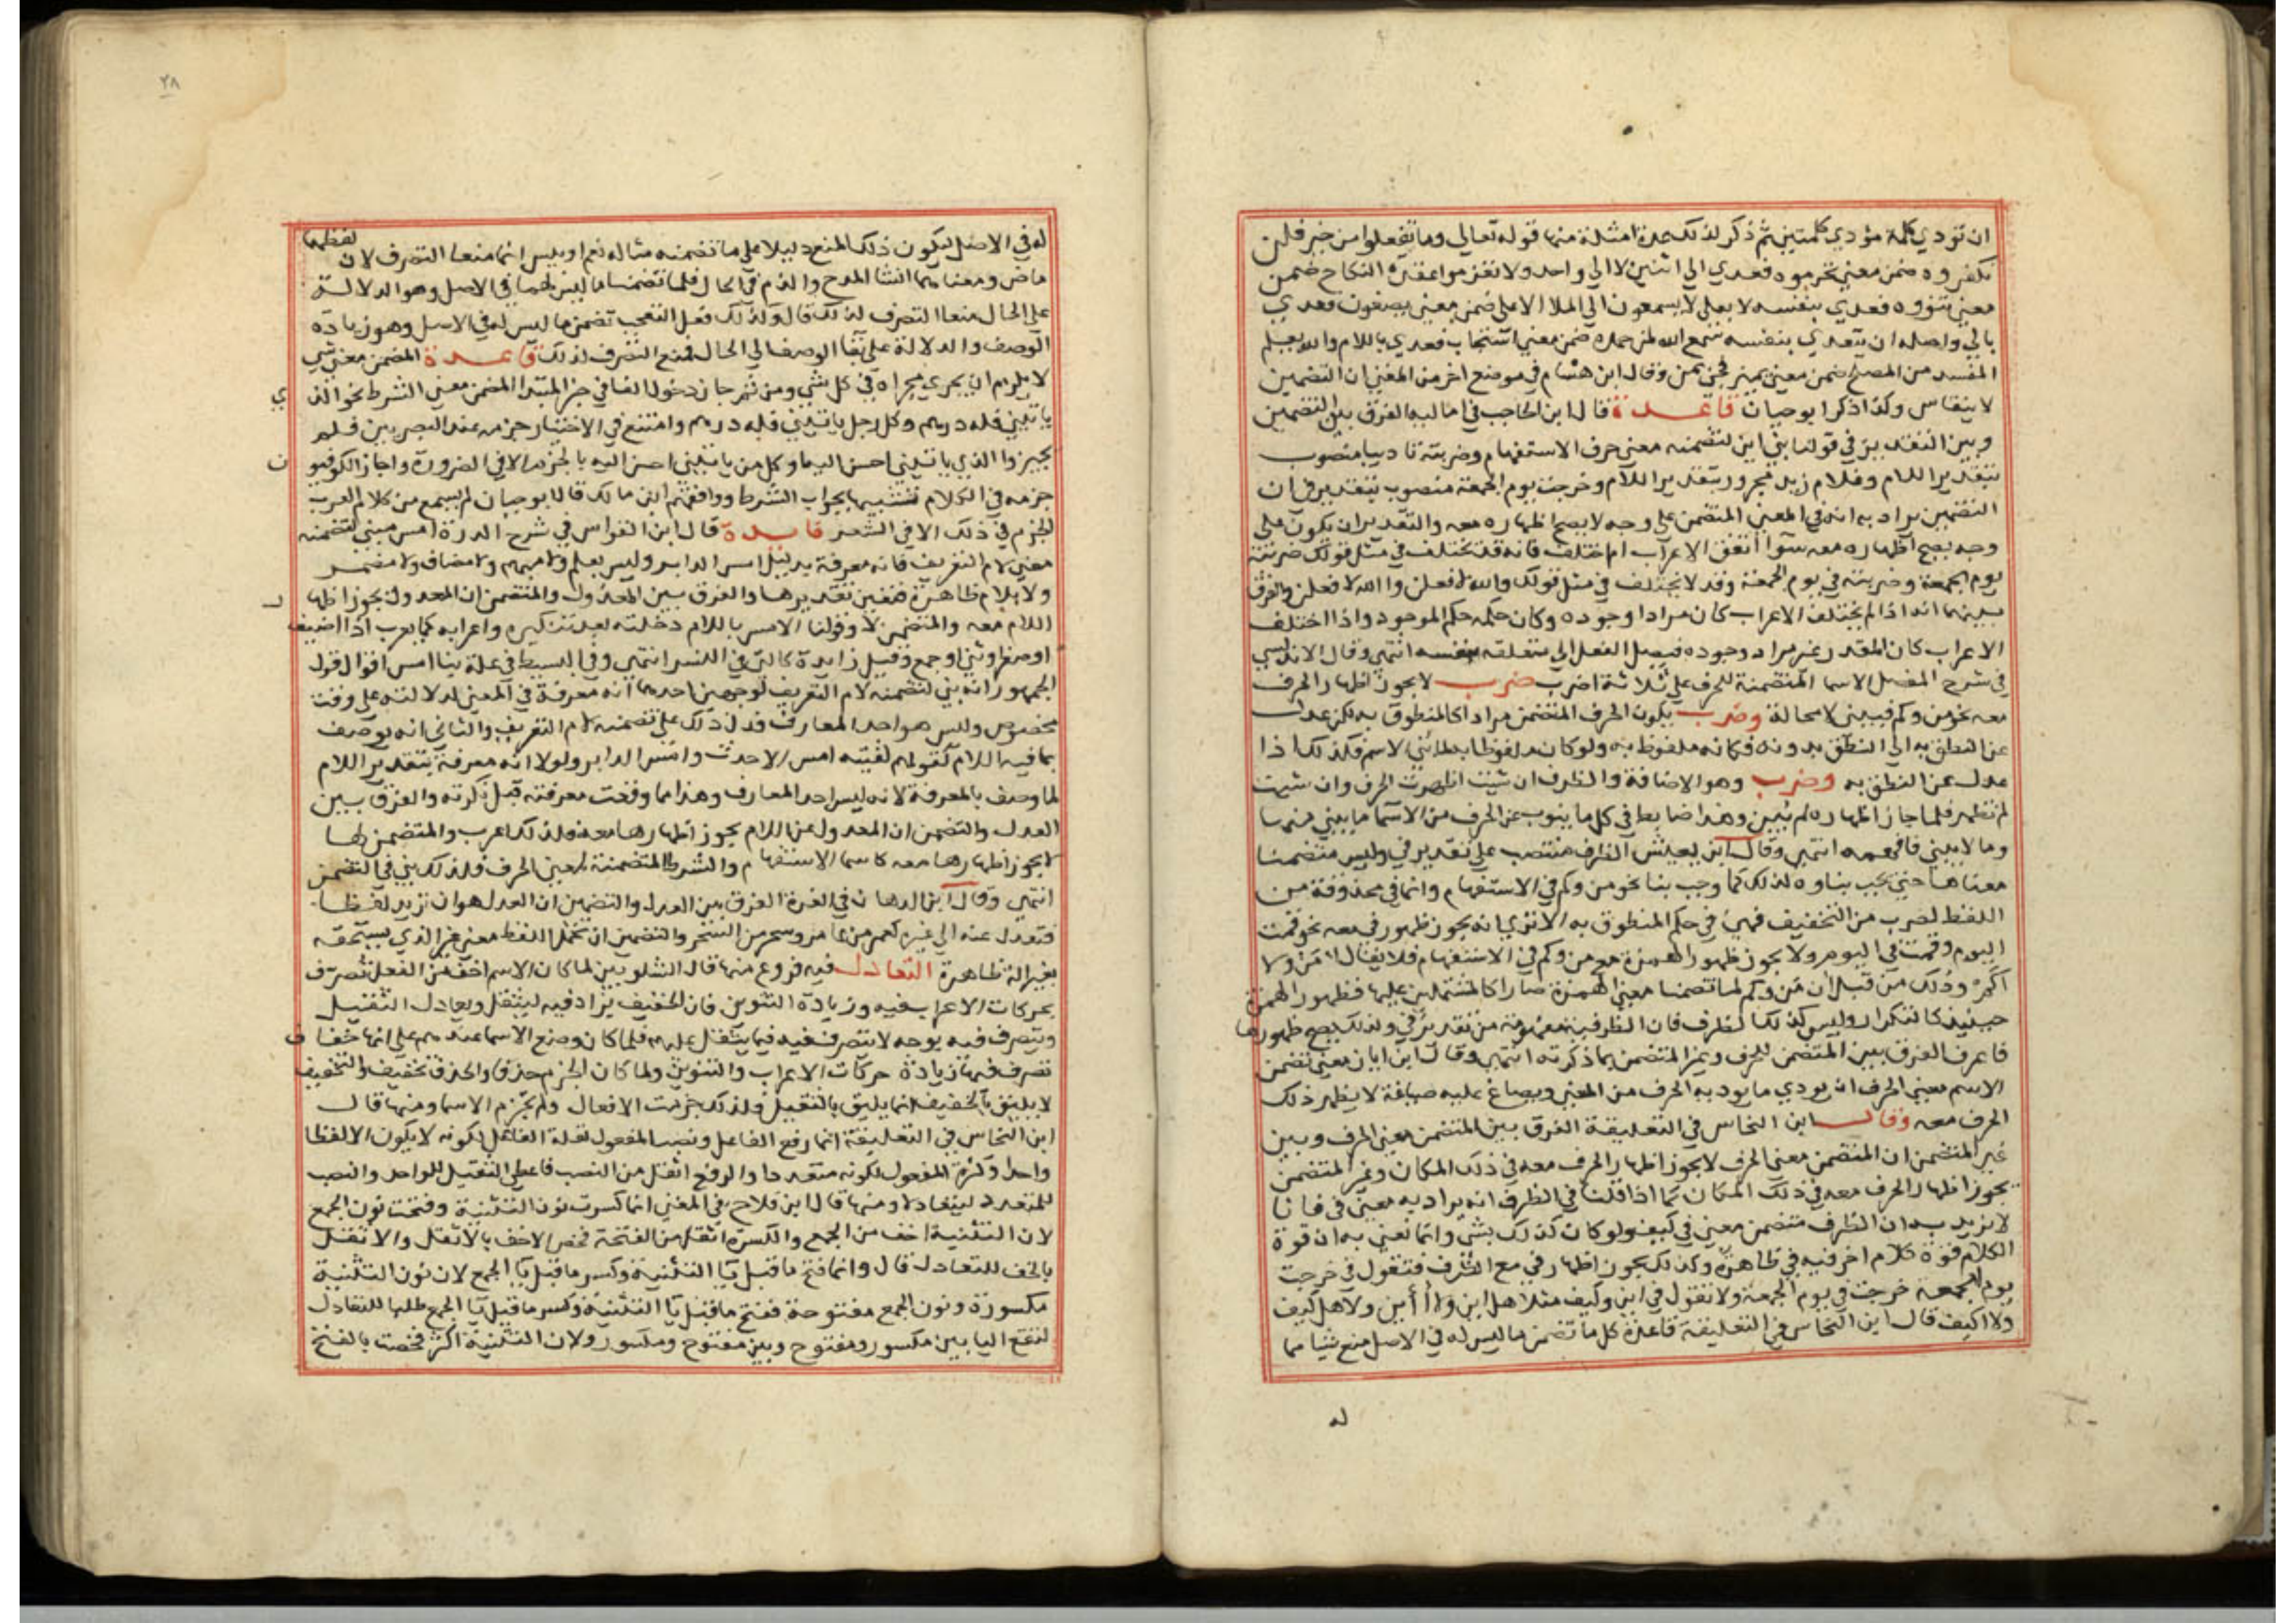 ان تودي كلمة مؤدي كلمتين ثم ذكر لذلك عدة امثلة منها قوله تعالي وما تفعلوا من خير فلن
تكفروه ضمن معني تحرموه فعدي الي اثنين لا الي واحد ولا تعزموا عقدة النكاح ضمن
معني تنووه فعدي بنفسه لا بعلي لا يسمعون الي الملا الاعلي ضمن معني يصغون فعدي
بالي واصله ان يتعدي بنفسه سمع الله لمن حمده ضمن معني استجاب فعدي باللام والله يعلم
المفسد من المصلح ضمن معني يميز فجئ بمن وقال ابن هشام في موضع اخر من المغني ان التضمين
لا ينقاس وكذا ذكر ابو حيان قاعدة قال ابن الحاجب في اماليه الفرق بين التضمين
وبين التقدير في قولنا بني اين لتضمنه معني حرف الاستفهام وضربته تاديبا منصوب
بتقدير اللام وغلام زيد مجرور بتقدير اللام وخرجت يوم الجمعة منصوب بتقدير في ان
التضمين يراد به انه في المعني المتضمن علي وجه لا يصح اظهاره معه والتقدير ان يكون علي
وجه يصح اظهاره معه سوا اتفق الاعراب ام اختلف فانه قد يختلف في مثل قولك ضربته
يوم الجمعة وضربته في يوم الجمعة وقد لا يختلف في مثل قولك والله لافعلن والله لافعلن والفرق
بينهما انه اذا لم يختلف الاعراب كان مرادا وجوده وكان حكمه حكم الموجود واذا اختلف
الاعراب كان المقدر غير مراد وجوده فيصل الفعل الي متعلقه بنفسه انتهي وقال الاندلسي
في شرح المفصل الاسما المتضمنة للحرف علي ثلاثة اضرب ضرب لا يجوز اظهار الحرف
معه نحو من وكم فيبني لا محالة وضرب يكون الحرف المتضمن مرادا كالمنطوق به لكن عدل
عن النطق به الي النطق بدونه فكانه ملفوظ به ولو كان ملفوظا به لما بني الاسم فكذلك اذا
عدل عن النطق به وضرب وهو الاضافة والظرف ان شيت اظهرت الحرف وان شيت
لم تظهر فلما جاز اظهاره لم يبن وهذا ضابط في كل ما ينوب عن الحرف من الاسما ما يبني منها
وما لا يبني فافهمه انتهي وقال ابن يعيش الظرف منتصب علي تقدير في وليس متضمنا
معناها حتي يجب بناوه لذلك كما وجب بنا نحو من وكم في الاستفهام وانما في محذوفة من
اللفظ لضرب من التخفيف فهي في حكم المنطوق به الا تري انه يجوز ظهور في معه نحو قمت
اليوم وقمت في اليوم ولا يجوز ظهور الهمزة مع من وكم في الاستفهام فلا يقال أمن ولا
أكم وذلك من قبل ان من وكم لما تضمنا معني الهمزة صارا كالمشتملين عليها فظهور الهمزة
حينيذ كالتكرار وليس كذلك الظرف فان الظرفية مفهومة من تقدير في ولذلك يصح ظهورها
فاعرف الفرق بين المتضمن للحرف وغير المتضمن بما ذكرته انتهي وقال ابن اياز معني تضمن
الاسم معني الحرف ان يودي ما يوديه الحرف من المعني ويصاغ عليه صياغة لا يظهر ذلك
الحرف معه وقال ابن النحاس في التعليقة الفرق بين المتضمن معني الحرف وبين
غير المتضمن ان المتضمن معني الحرف لا يجوز اظهار الحرف معه في ذلك المكان وغير المتضمن
يجوز اظهار الحرف معه في ذلك المكان كما اذا قلنا في الظرف انه يراد به معني في فانا
لا نريد به ان الظرف متضمن معني في كيف ولو كان كذلك بني وانما نعني به ان قوة
الكلام قوة كلام اخر فيه في ظاهرة وكذلك يجوز اظهار في مع الظرف فتقول في خرجت
يوم الجمعة خرجت في يوم الجمعة ولا تقول في اين وكيف مثلا هل اين ولا أأين ولا هل كيف
ولا اكيف قال ابن النحاس في التعليقة قاعدة كل ما تضمن ما ليس له في الاصل منع شيا مما
له
٢٨
له في الاصل ليكون ذلك المنع دليلا علي ما تضمنه مثاله نعم وبيس انما منعا التصرف لان لفظهما
ماض ومعناهما انشا المدح والذم في الحال فلما تضمنا ما ليس لهما في الاصل وهو الدلالة
علي الحال منعا التصرف لذلك قال وكذلك فعل التعجب تضمن ما ليس له في الاصل وهو زيادة
الوصف والدلالة علي بقا الوصف الي الحال فمنع التصرف لذلك قاعدة المضمن معني شي
لا يلزم ان يجري مجراه في كل شي ومن ثم جاز دخول الفا في خبر المبتدا المضمن معني الشرط نحو الذي
ياتيني فله درهم وكل رجل ياتيني فله درهم وامتنع في الاختيار جزمه عند البصريين فلم
يجيزوا الذي ياتيني احسن اليه وكل من ياتيني احسن اليه بالجزم الا في الضرورة واجاز الكوفيون
جزمه في الكلام تشبيها بجواب الشرط ووافقهم ابن مالك قال ابو حيان لم يسمع من كلام العرب
الجزم في ذلك الا في الشعر فايدة قال ابن القواس في شرح الدرة امس مبني لتضمنه
معني لام التعريف فانه معرفة بدليل امس الدابر وليس بعلم ولا مبهم ولا مضاف ولا مضمر
ولا بلام ظاهرة فتعين تقديرها والفرق بين المعدول والمتضمن ان المعدول يجوز اظهار
اللام معه والمتضمن لا وقولنا الامس باللام دخلته بعد تنكيره واعرابه كما يعرب اذا اضيف
او صغر او ثني او جمع وقيل زايدة كالتي في النسر انتهي وفي البسيط في علة بنا امس اقوال قول
الجمهور انه بني لتضمنه لام التعريف لوجهين احدهما انه معرفة في المعني لدلالته علي وقت
مخصوص وليس هو احد المعارف فدل ذلك علي تضمنه لام التعريف والثاني انه يوصف
بما فيه اللام كقولهم لقيته امس الاحدث وامس الدابر ولولا انه معرفة بتقدير اللام
لما وصف بالمعرفة لانه ليس احد المعارف وهذا مما وقعت معرفته قبل نكرته والفرق بين
العدل والتضمن ان المعدول عن اللام يجوز اظهارها معه فلذلك اعرب والمتضمن لها
لا يجوز اظهارها معه كاسما الاستفهام والشرط المتضمنة لمعني الحرف فلذلك بني في التضمن
انتهي وقال ابن الدهان في الغرة الفرق بين العدل والتضمين ان العدل هو ان تريد لفظا
فتعدل عنه الي غيره كعمر من عامر وسحر من السحر والتضمن ان تحمل اللفظ معني غير الذي يستحقه
بغير الة ظاهرة التعادل فيه فروع منها قال الشلوبين لما كان الاسم اخف من الفعل تصرف
بحركات الاعراب فيه وزيادة التنوين فان الخفيف يزاد فيه ليثقل ويعادل الثقيل
ويتصرف فيه بوجه لا يتصرف فيه فيما يثقل عليهم فلما كان وضع الاسما عندهم علي انها خفاف
تصرف فيها بزيادة حركات الاعراب والتنوين ولما كان الجزم حذفا والحذف تخفيف والتخفيف
لا يليق بالخفيف انما يليق بالثقيل ولذلك جزمت الافعال ولم تجزم الاسما ومنها قال
ابن النحاس في التعليقة انما رفع الفاعل ونصب المفعول لقلة الفاعل لكونه لا يكون الا لفظا
واحدا وكثرة المفعول لكونه متعددا والرفع اثقل من النصب فاعطي الثقيل للواحد والنصب
للمتعدد ليتعادلا ومنها قال ابن فلاح في المغني انما كسرت نون التثنية وفتحت نون الجمع
لان التثنية اخف من الجمع والكسرة اثقل من الفتحة فخص الاخف بالاثقل والاثقل
بالخف للتعادل قال وانما فتح ما قبل يا التثنية وكسر ما قبل يا الجمع لان نون التثنية
مكسورة ونون الجمع مفتوحة ففتح ما قبل يا التثنية وكسر ما قبل يا الجمع طلبا للتعادل
لتقع اليا بين مكسور ومفتوح وبين مفتوح ومكسور ولان التثنية اكثر فخصت بالفتح